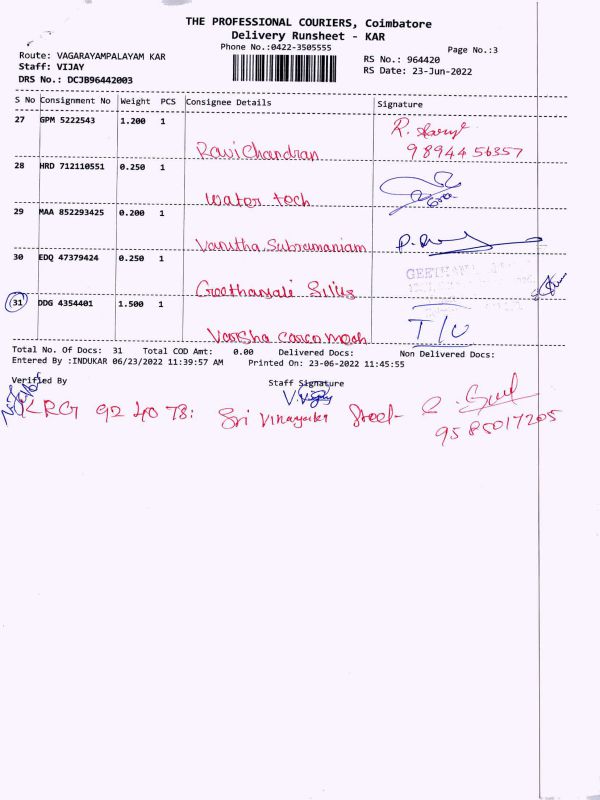 THE PROFESSIONAL COURIERS, Coimbatore
Delivery Runsheet - KAR
Phone No.:0422-3505555
Page No.:3
Route: VAGARAYAMPALAYAM KAR
RS No.: 964420
Staff: VIJAY
RS Date: 23-Jun-2022
DRS No.: DCJB96442003
S No Consignment No Weight PCS Consignee Details Signature
27 GPM 5222543 1.200 1
Ravi Chandran
R.
98944 56357
28 HRD 712110551 0.250 1
water tech
29 MAA 852293425 0.200 1
Vanitha Subramaniam
30 EDQ 47379424 0.250 1
Geethanjali Silks
31 DDG 4354401 1.500 1
Varsha
T/U
Total No. Of Docs: 31 Total COD Amt: 0.00 Delivered Docs: Non Delivered Docs:
Entered By :INDUKAR 06/23/2022 11:39:57 AM Printed On: 23-06-2022 11:45:55
Verified By Staff Signature
KRG 92 40 78: Sri Vinayaka Steel-
9585017205